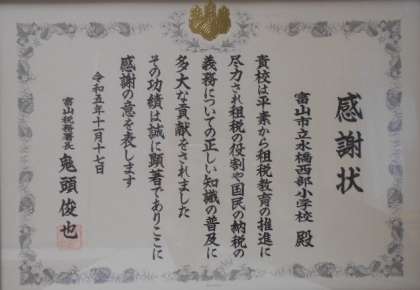 感謝状
富山市立水橋西部小学校 殿
貴校は平素から租税教育の推進に
尽力され租税の役割や国民の納税の
義務についての正しい知識の普及に
多大な貢献をされました
その功績は誠に顕著でありここに
感謝の意を表します
令和五年十一月十七日
富山税務署長 鬼頭俊也